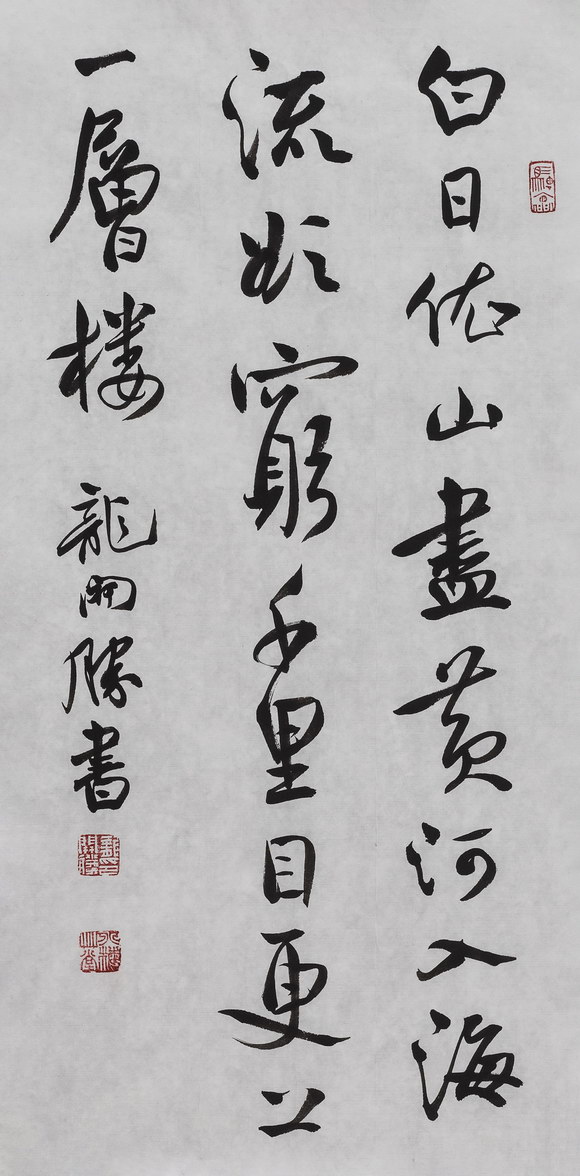 白日依山盡黄河入海
流欲窮千里目更上
一層樓 龍開勝書